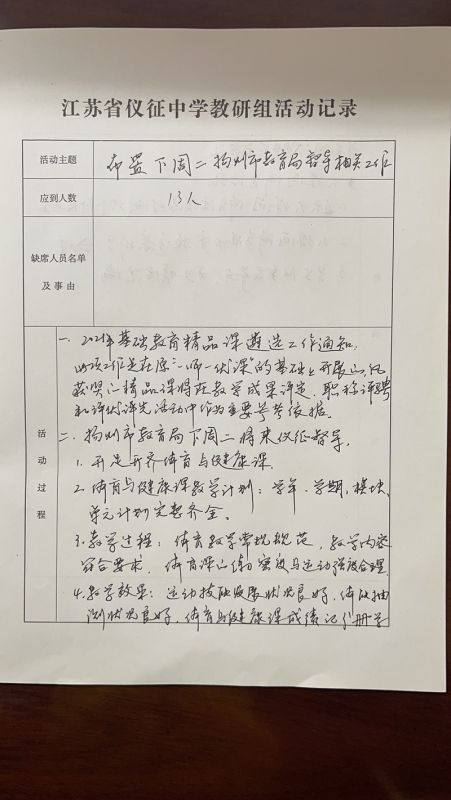 江苏省仪征中学教研组活动记录
活动主题 布置下周二扬州市教育局督导相关工作
应到人数 13人
缺席人员名单
及事由
活动过程
一、2021年基础教育精品课遴选工作通知.
此项工作是在原"一师一优课"的基础上开展的,凡
获奖的精品课将在教学成果评定、职称评聘
和评优评先活动中作为主要参考依据.
二、扬州市教育局下周二将来仪征督导.
1. 开足开齐体育与健康课.
2. 体育与健康课教学计划:学年、学期、模块、
单元计划完整齐全.
3. 教学过程:体育教学常规规范,教学内容
符合要求,体育课的练习密度与运动强度合理.
4. 教学效果:运动技能发展状况良好,体质抽
测状况良好,体育与健康课成绩记分册学